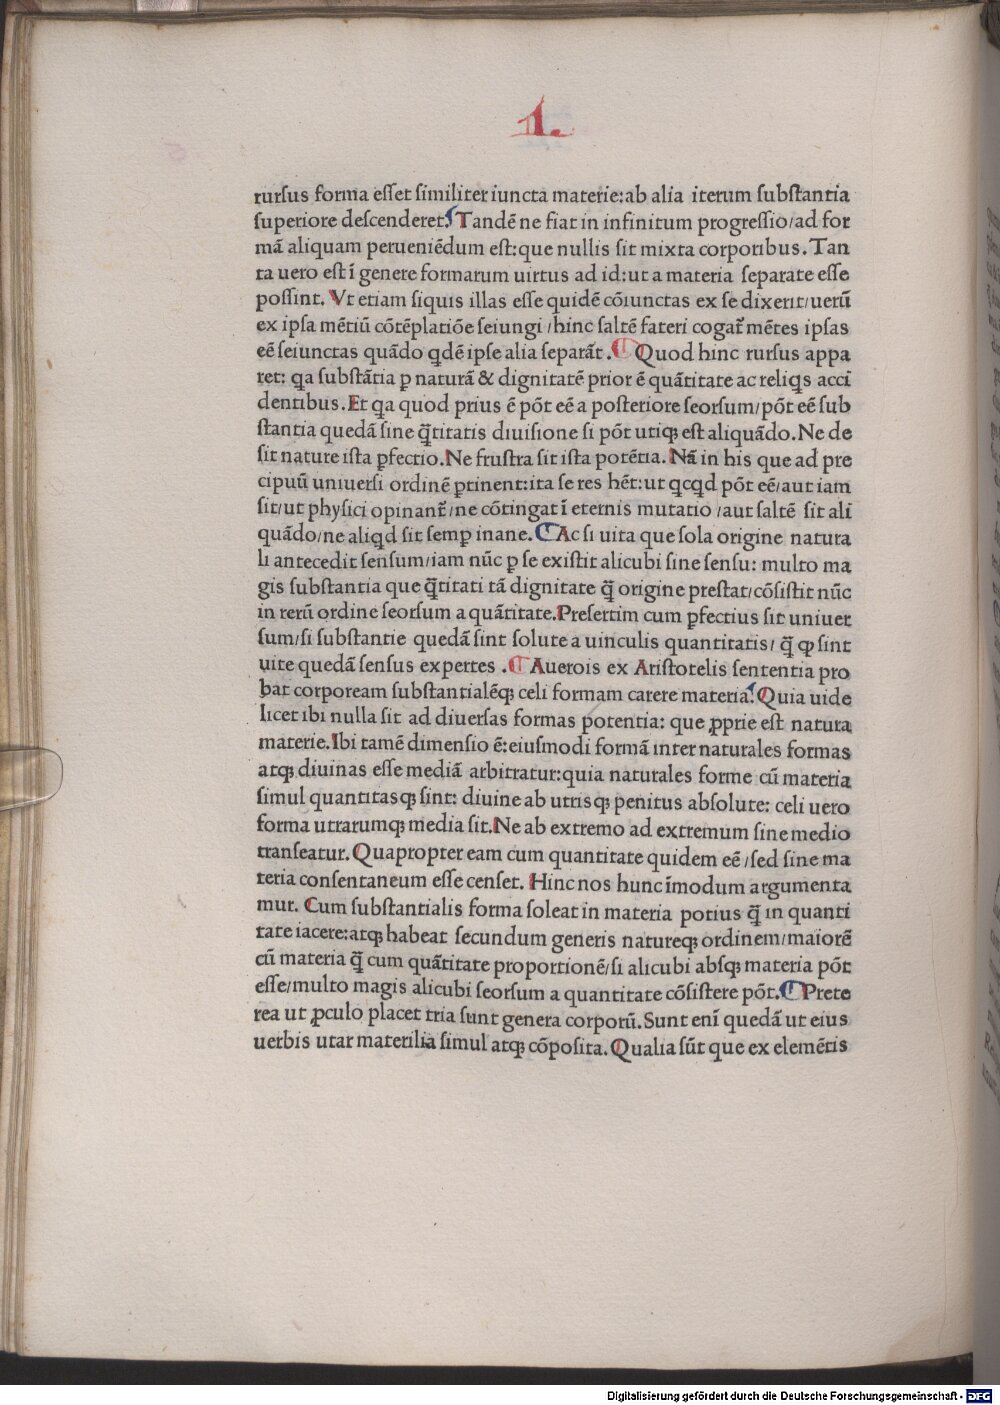 1.
rursus forma esset similiter iuncta materie:ab alia iterum substantia
superiore descenderet. Tandē ne fiat in infinitum progressio/ad for
mā aliquam perueniēdum est:que nullis sit mixta corporibus. Tan
ta uero est ī genere formarum uirtus ad id:ut a materia separate esse
possint. Vt etiam siquis illas esse quidē cōiunctas ex se dixerit/uerū
ex ipsa mētiū cōtēplatiōe seiungi /hinc saltē fateri cogat᷑ mētes ipsas
eē seiunctas quādo qdē ipse alia separāt. Quod hinc rursus appa
ret: qa substātia ꝑ naturā & dignitatē prior ē quātitate ac reliqs acci
dentibus. Et qa quod prius ē pōt eē a posteriore seorsum/pōt eē sub
stantia quedā sine q̄titatis diuisione si pōt utiqꝫ est aliquādo. Ne de
sit nature ista ꝑfectio. Ne frustra sit ista potētia. Nā in his que ad pre
cipuū uniuersi ordinē ꝑtinent:ita se res hēt:ut qcqd pōt eē/aut iam
sit/ut physici opinant᷑/ne cōtingat ī eternis mutatio /aut saltē sit ali
quādo/ne aliqd sit semꝑ inane. Ac si uita que sola origine natura
li antecedit sensum/iam nūc ꝑ se existit alicubi sine sensu: multo ma
gis substantia que q̄titati tā dignitate q̄ origine prestat/cōsistit nūc
in rerū ordine seorsum a quātitate. Presertim cum ꝑfectius sit uniuer
sum/si substantie quedā sint solute a uinculis quantitatis/ q̄ ꝙ sint
uite quedā sensus expertes . Auerois ex Aristotelis sententia pro
bat corpoream substantialēqꝫ celi formam carere materia. Quia uide
licet ibi nulla sit ad diuersas formas potentia: que ꝓprie est natura
materie. Ibi tamē dimensio ē:eiusmodi formā inter naturales formas
atqꝫ diuinas esse mediā arbitratur:quia naturales forme cū materia
simul quantitasqꝫ sint: diuine ab utrisqꝫ penitus absolute: celi uero
forma utrarumqꝫ media sit. Ne ab extremo ad extremum sine medio
transeatur. Quapropter eam cum quantitate quidem eē /sed sine ma
teria consentaneum esse censet. Hinc nos hunc īmodum argumenta
mur. Cum substantialis forma soleat in materia potius q̄ in quanti
tate iacere:atqꝫ habeat secundum generis natureqꝫ ordinem/maiorē
cū materia q̄ cum quātitate proportionē/si alicubi absqꝫ materia pōt
esse/multo magis alicubi seorsum a quantitate cōsistere pōt. Prete
rea ut ꝓculo placet tria sunt genera corporū. Sunt enī quedā ut eius
uerbis utar materilia simul atqꝫ cōposita. Qualia sūt que ex elemētis
Digitalisierung gefördert durch die Deutsche Forschungsgemeinschaft - DFG